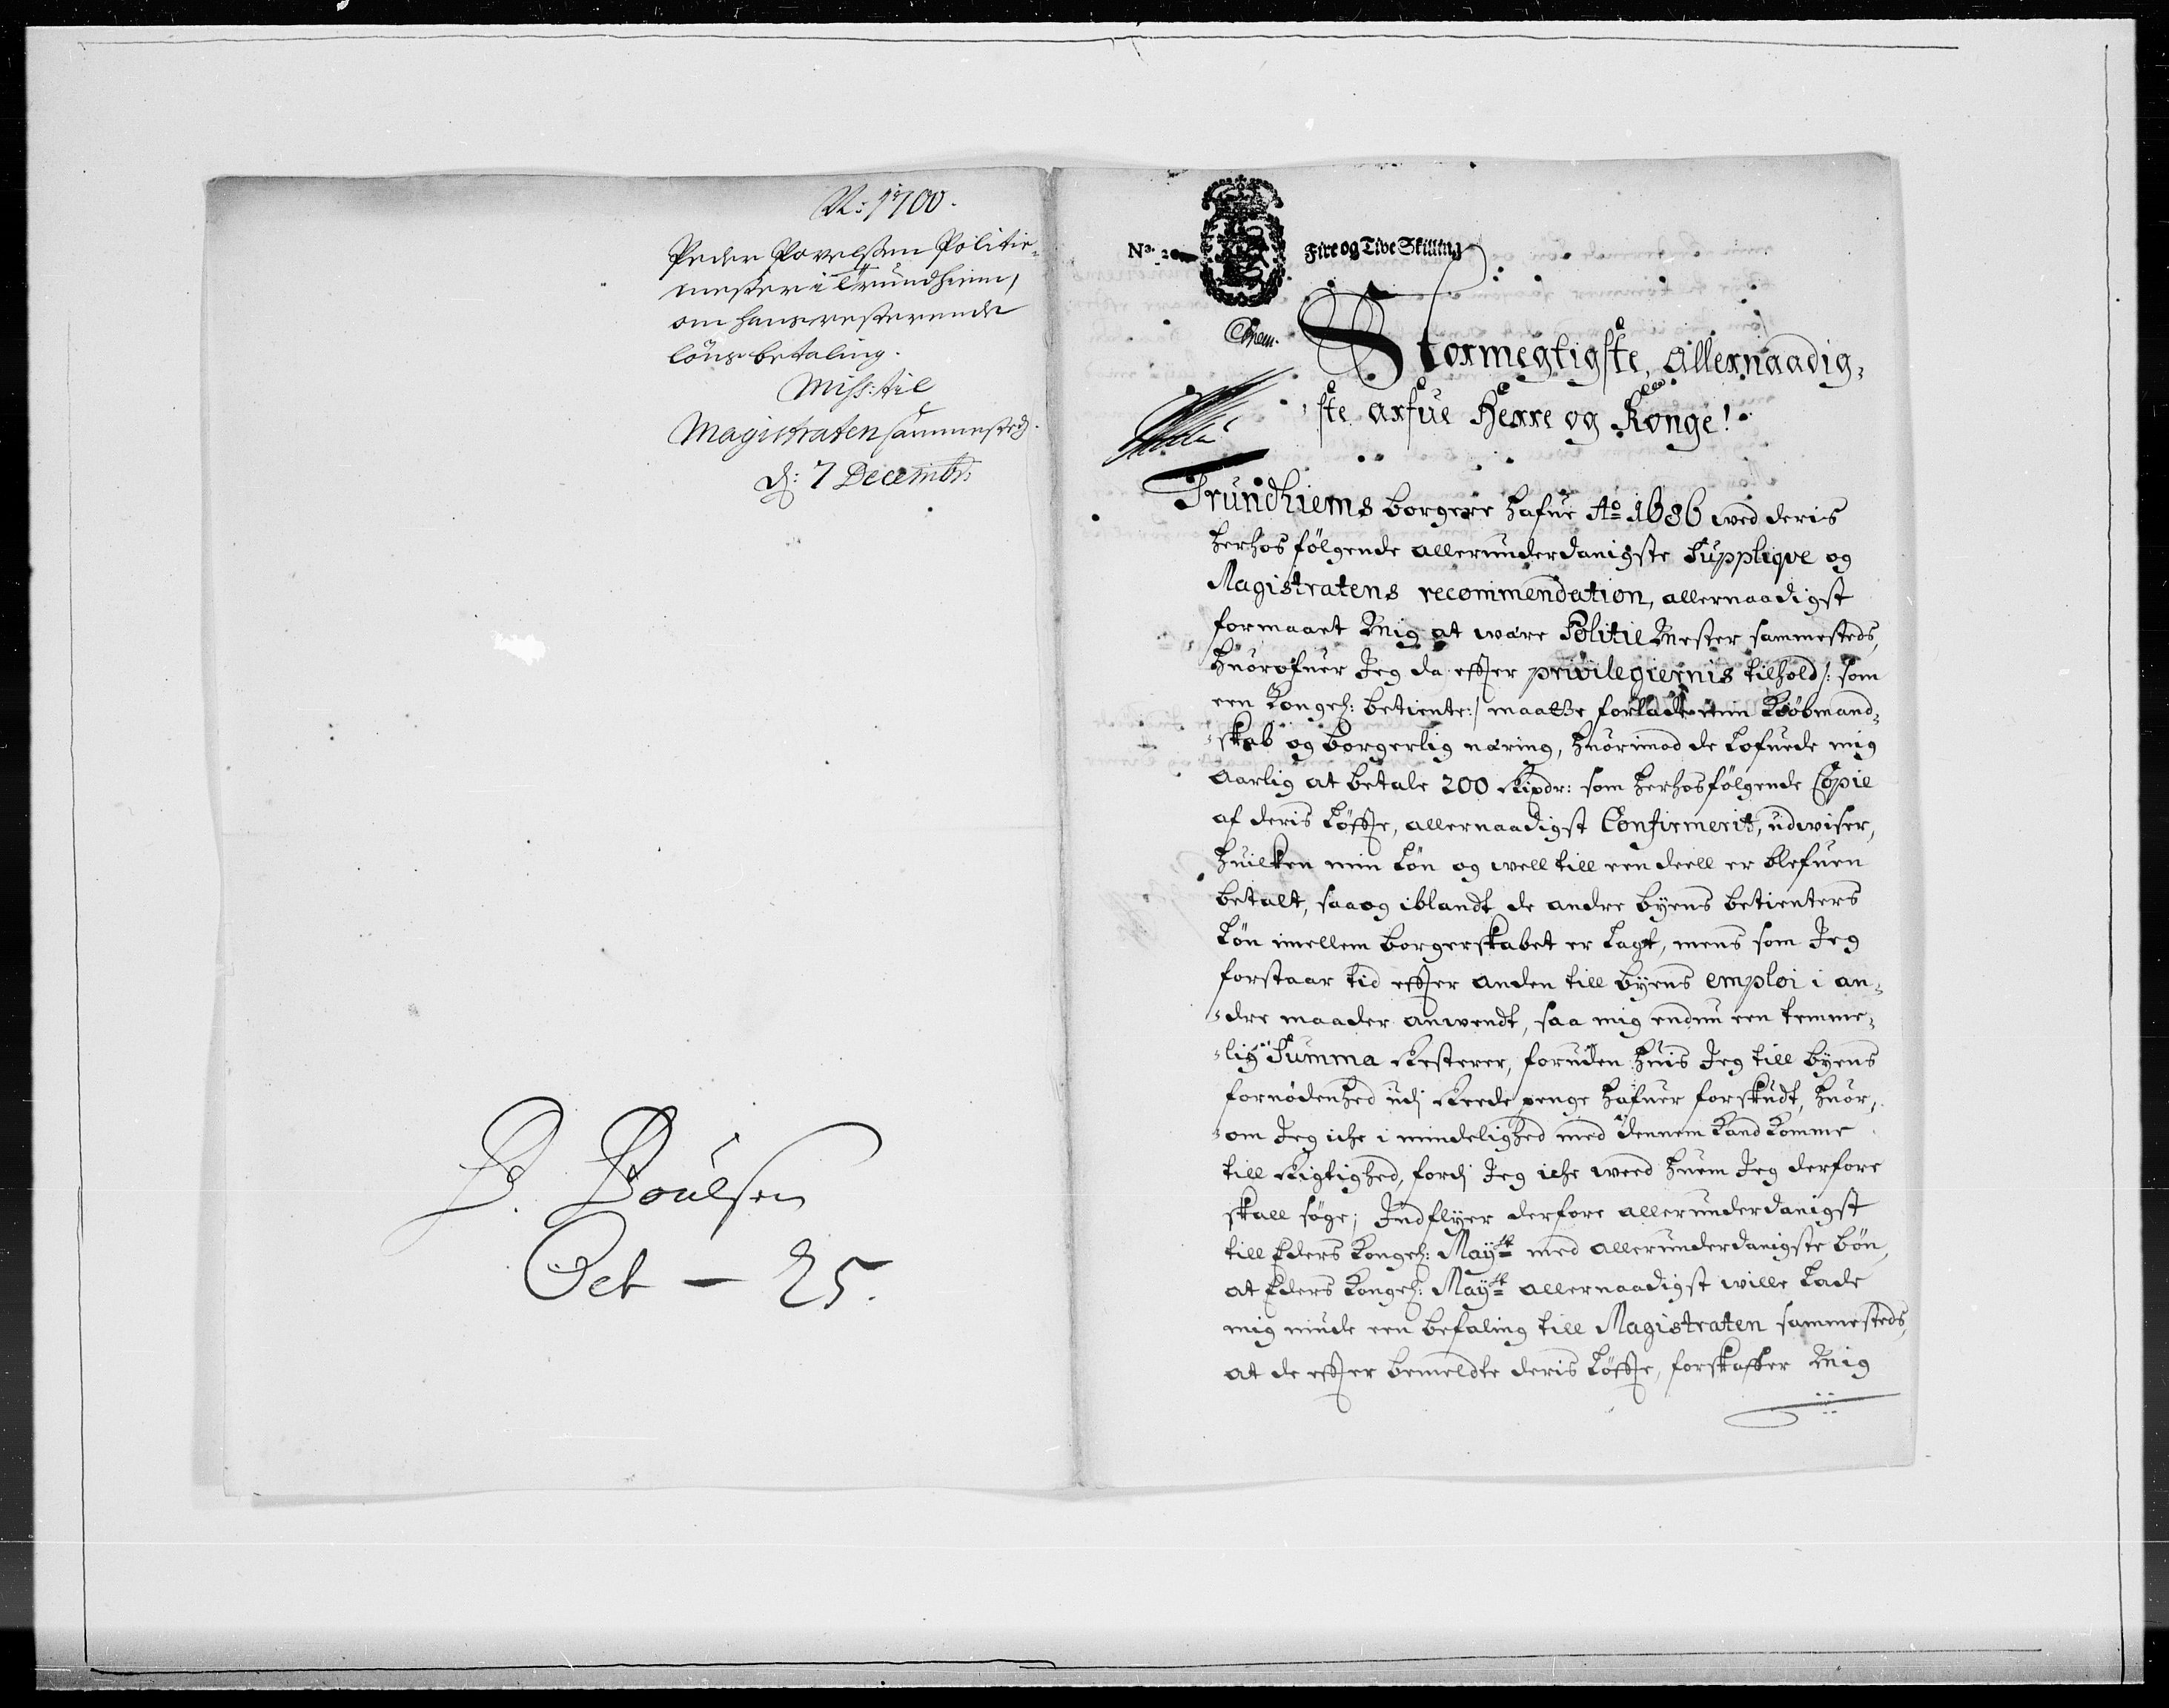 N: 1700.
Peder Povelssen Politie-
mester i Trundhiem,
om hans resterende
löns betaling.
Miss: til
Magistraten sammested.
d: 7 Decembr:
P. Poulsen
Oct - 25.
No.
Fire og Tive Skilling
Stormegtigste, Allernaadig-
ste Arfue Herre og Konge!
Trundhiems borgere hafue Ao 1686 med deris
herhos fölgende allerunderdanigste Supplique og
Magistratens recommendation, allernaadigst
formaaet Mig at være Politie Mester sammesteds,
huorofuer Jeg da effter privilegiernis tilhold /: som
een Kongel: betiente :/ maatte forlade min Kiöbmand-
skab og borgerlig næring, huorimod de lofuede mig
aarlig at betale 200 Rixdr: som herhosfölgende Copie
af deris Löffte, allernaadigst Confirmerit, udwiser,
huilken min Lön og well till een deell er blefuen
betalt, saa og iblandt de andre byens betienters
Lön imellem borgerskabet er lagt, mens som Jeg
forstaar tid effter anden till byens emploi i an-
dre maader anwendt, saa mig endnu een temme-
lig Summa Resterer, foruden huis Jeg till byens
fornödenhed udj Reede penge hafuer forskudt, huor-
om Jeg iche i mindelighed med dennem kand komme
till Rigtighed, fordj Jeg iche weed huem Jeg derfore
skall söge; Indflyer derfore allerunderdanigst
till Eders Kongel: Maytt med allerunderdanigste bön,
at Eders Kongel: Maytt allernaadigst wille lade
mig niude een befaling till Magistraten sammesteds,
at de effter bemeldte deris Löffte, forskaffer Mig